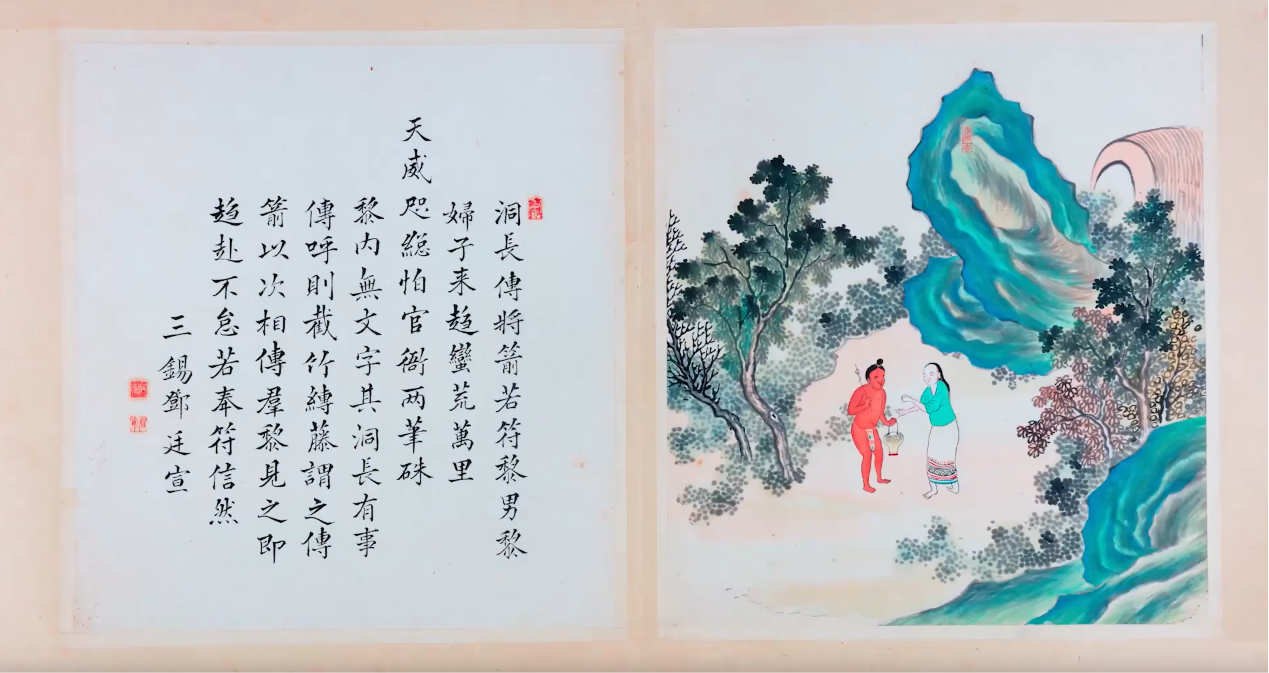 洞長傳將箭若符黎男黎
婦子来趍蠻荒萬里
天威咫緦怕官衙两筆硃
黎內無文字其洞長有事
傳呼則截竹縳藤謂之傳
箭以次相傳羣黎見之即
趍赴不怠若奉符信然
三錫鄧廷宣